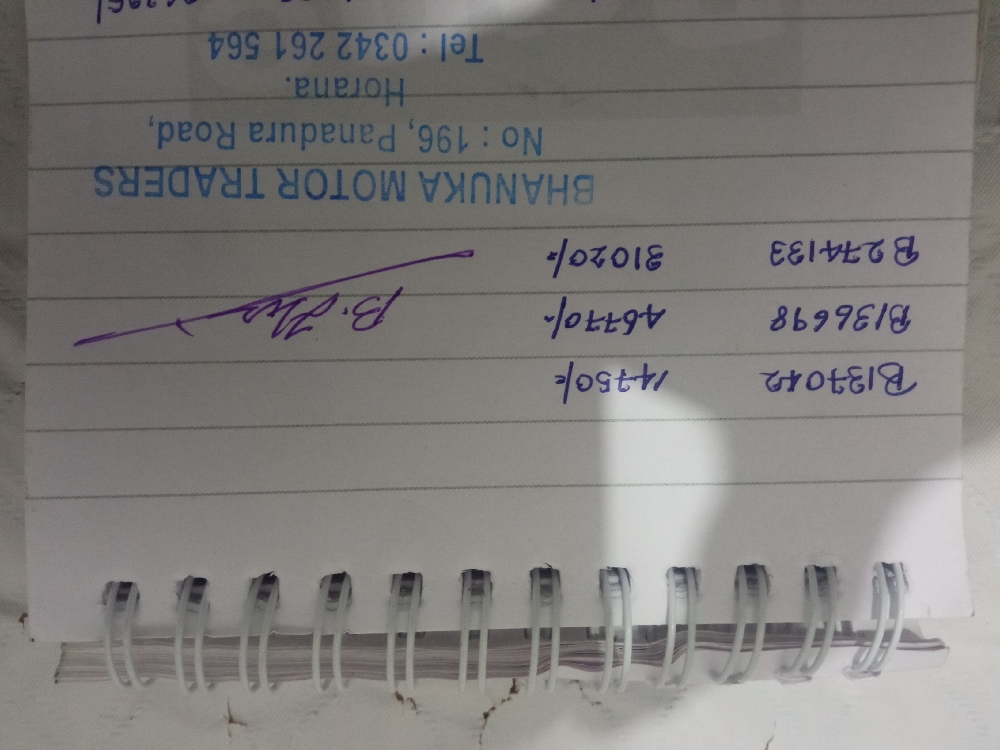 B137042 14750/=
B136698 46770/-
B274133 31020/=
BHANUKA MOTOR TRADERS
No : 196, Panadura Road,
Horana.
Tel : 0342 261 564